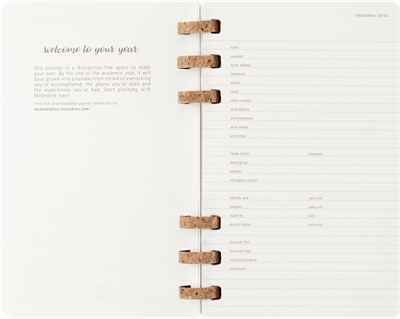 welcome to your year
This planner is a distraction-free space to make
your own. By the end of the academic year, it will
have grown into a handwritten record of everything
you've accomplished, the places you've been and
the experiences you've had. Start planning with
Moleskine now!
Find free downloadable planner templates on
mymoleskine.moleskine.com
PERSONAL DATA
name
surname
home address
telephone
mobile
email
online contact
work address
work telephone
work mobile
work email
family doctor
telephone
blood group
allergies
emergency contact
identity card
valid until
passport
valid until
issued by
valid until
favourite film
favourite book